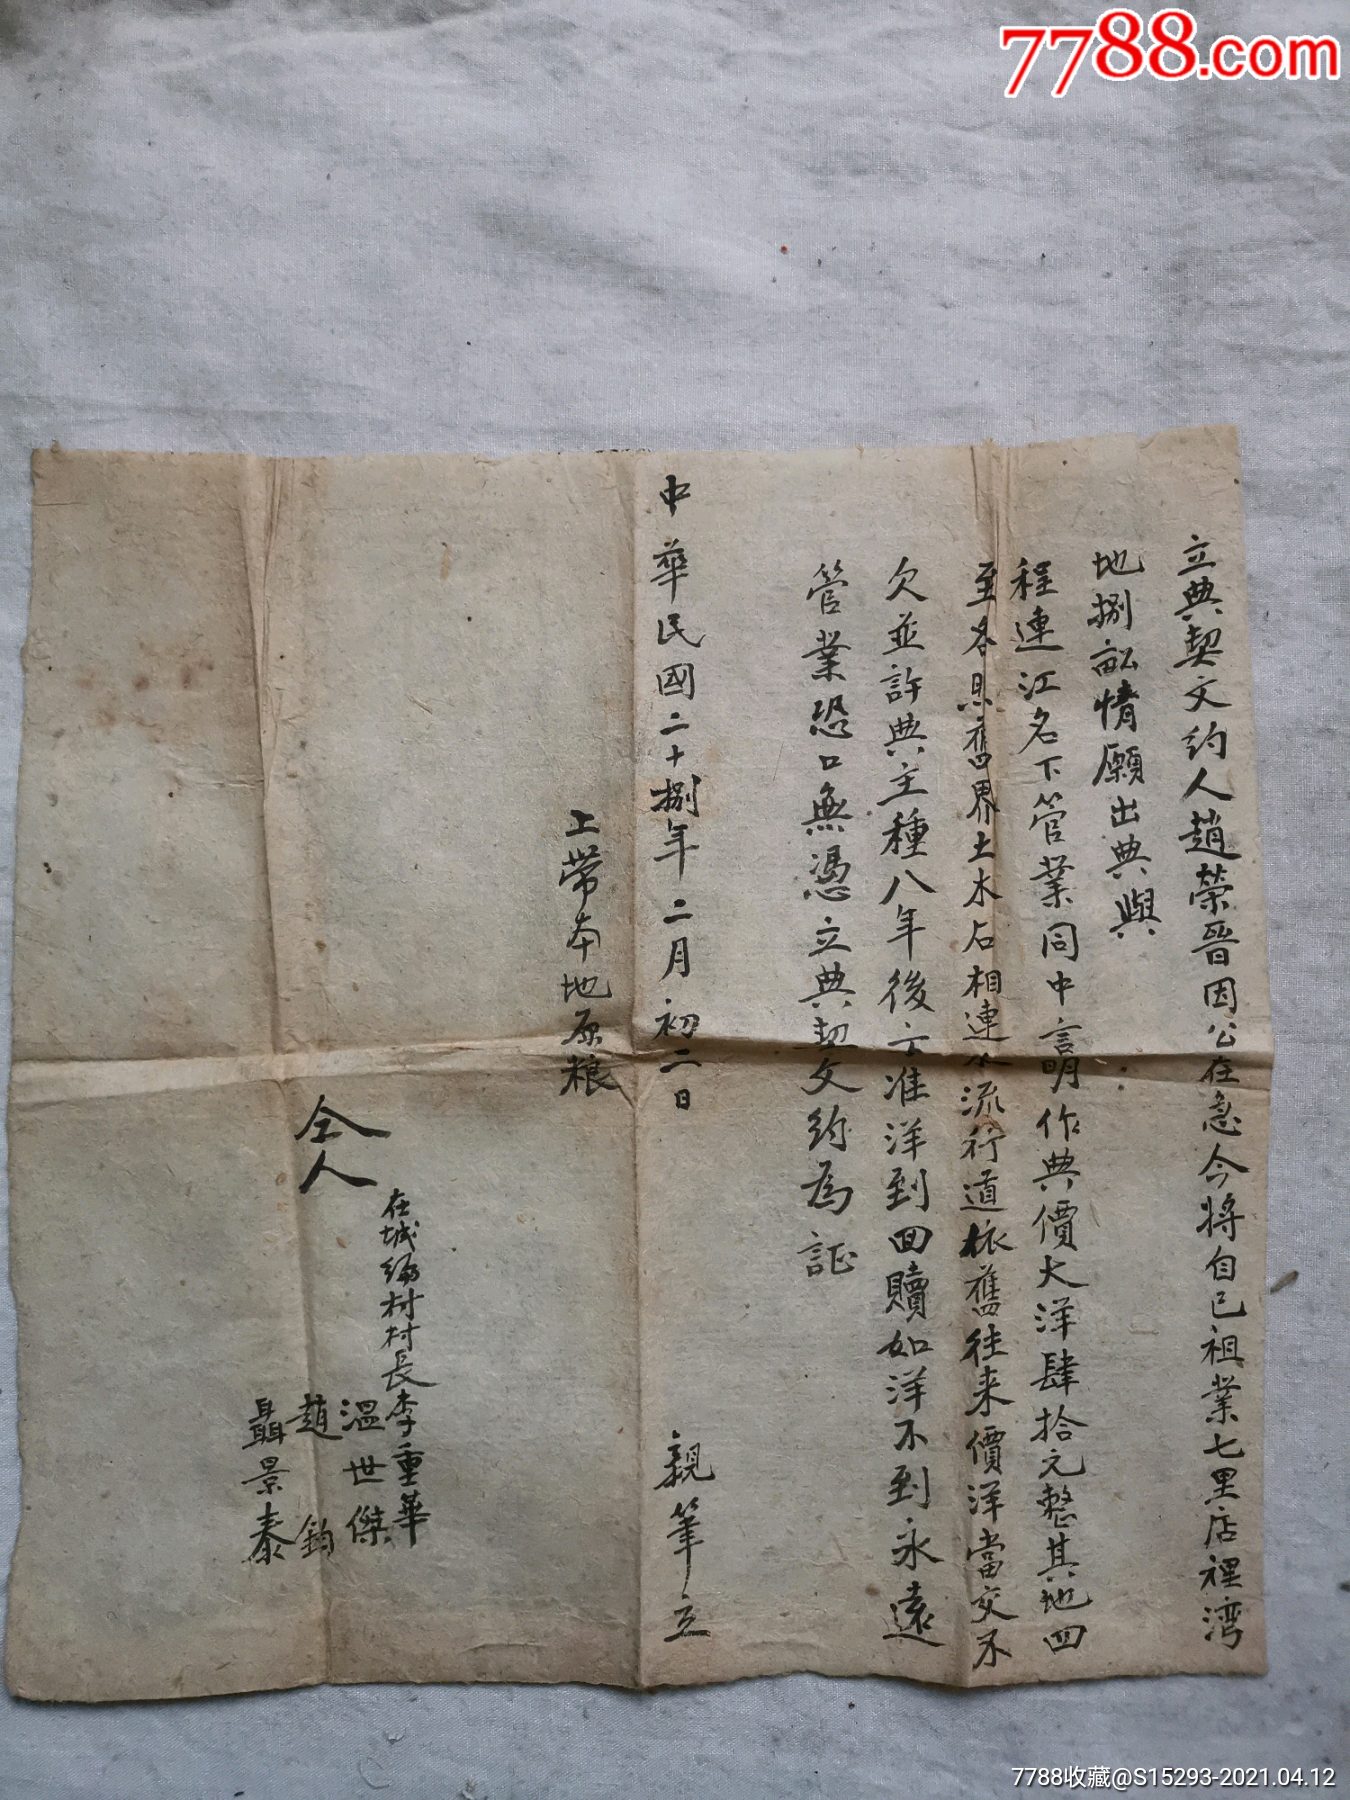 7788.com
立典契文約人趙榮晉因公在急今將自己祖業七里店裡湾
地捌畝情願出典與
程連江名下管業同中言明作典價大洋肆拾元整其地四
至各照舊界土木石相連水流行道依舊往来價洋當交不
欠並許典主種八年後方准洋到回贖如洋不到永遠
管業恐口無憑立典契文約為証
中華民國二十捌年二月初二日 親筆立
上帶本地原粮
仝人
在城編村村長李重華
溫世傑
趙鈞
聶景泰
7788收藏@S15293-2021.04.12